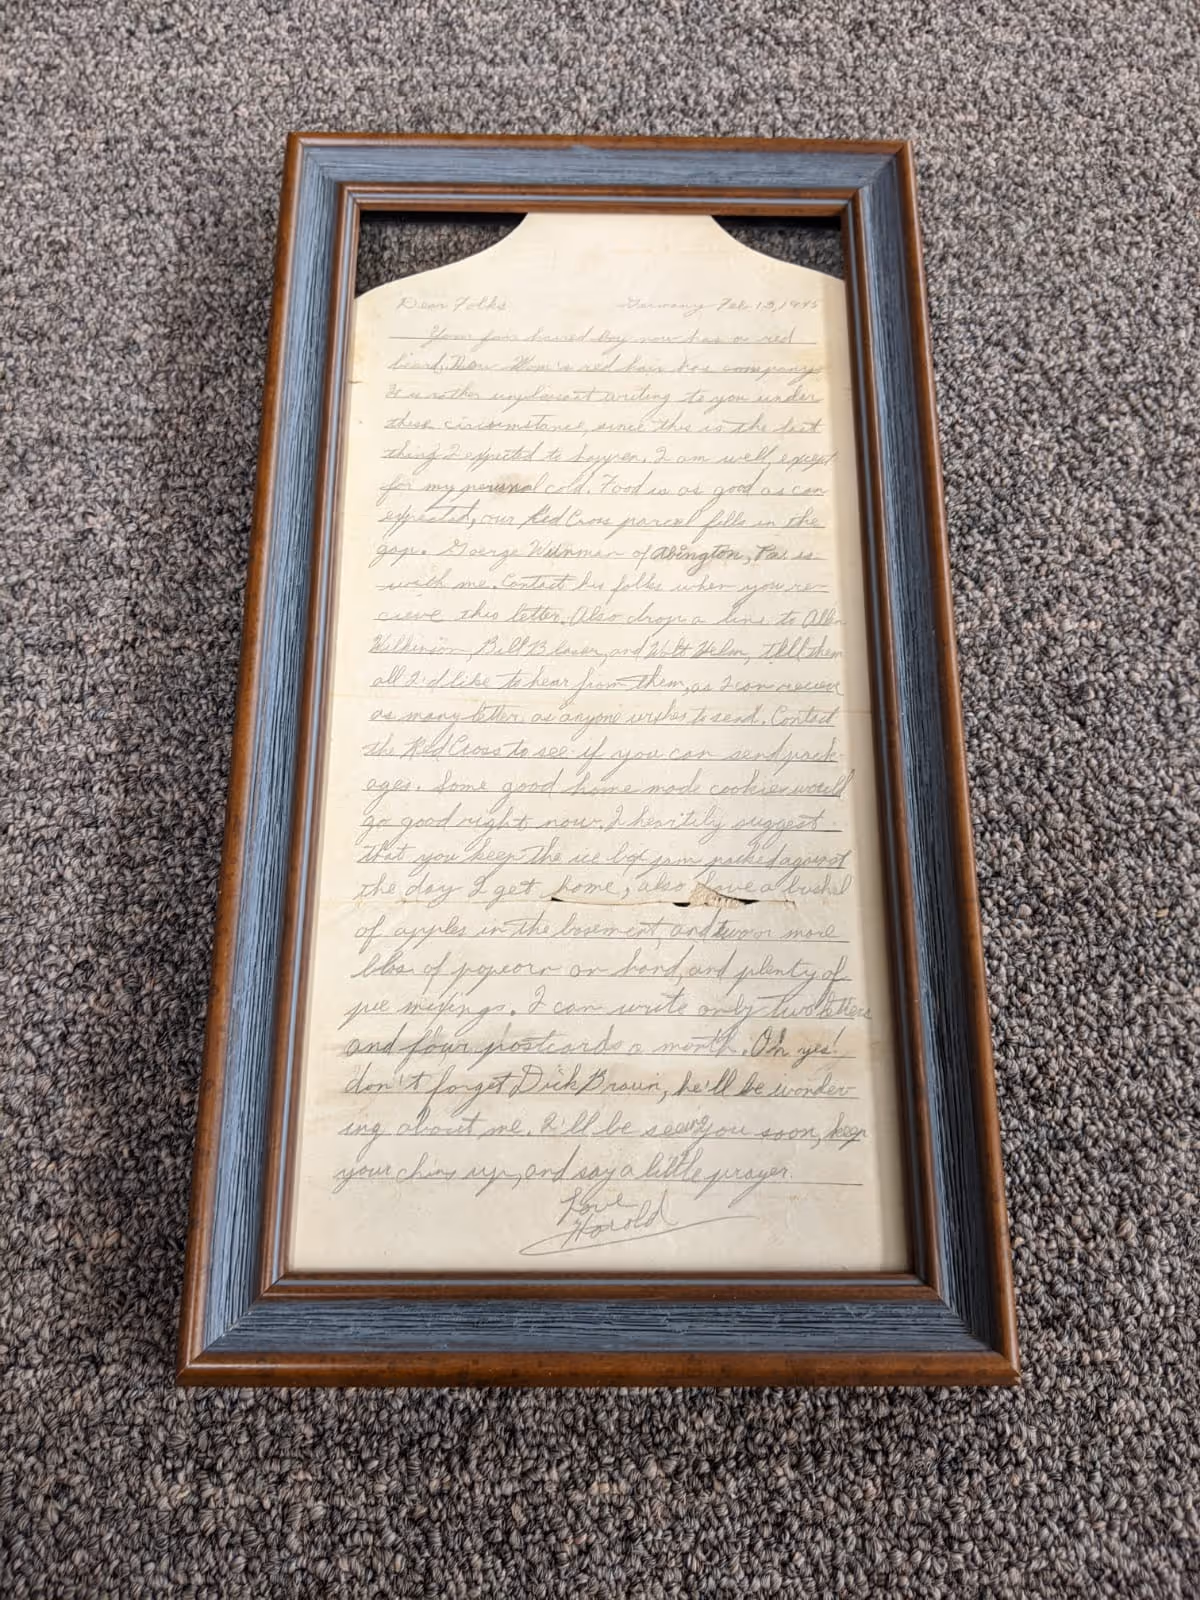 Dear Folks Germany Feb. 13, 1945
Your fair haired boy now has a red
beard. Now Mom's red hair has company.
It is rather unpleasant writing to you under
these circumstance, since this is the last
thing I expected to happen. I am well, except
for my personal cold. Food is as good as can
expected, our Red Cross parcel fills in the
gap. George of Abington, Pa. is
with me. Contact his folks when you re-
cieve this letter. Also drop a line to Allen
Wilkinson, Bill Blaser, and Walt Helm, tell them
all I'd like to hear from them, as I can recieve
as many letter as anyone wishes to send. Contact
the Red Cross to see if you can send pack-
ages. Some good home made cookies would
go good right now. I heartily suggest
that you keep the ice box jam packed against
the day I get home, also have a bushel
of apples in the basement, and two or more
lbs. of popcorn on hand, and plenty of
pie mixings. I can write only two letters
and four postcards a month. Oh yes!
don't forget Dick Braun, he'll be wonder-
ing about me. I'll be seeing you soon, keep
your chins up, and say a little prayer.
Love
Harold